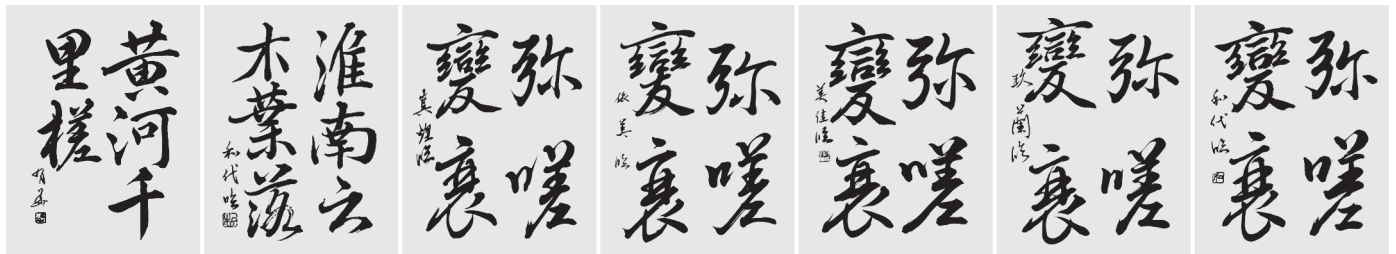 黄河千
里槎
淮南云
木葉落
和代臨
弥嗟
變衰
真
臨
弥嗟
變衰
依美臨
弥嗟
變衰
美佳臨
弥嗟
變衰
玖蘭臨
弥嗟
變衰
和代臨